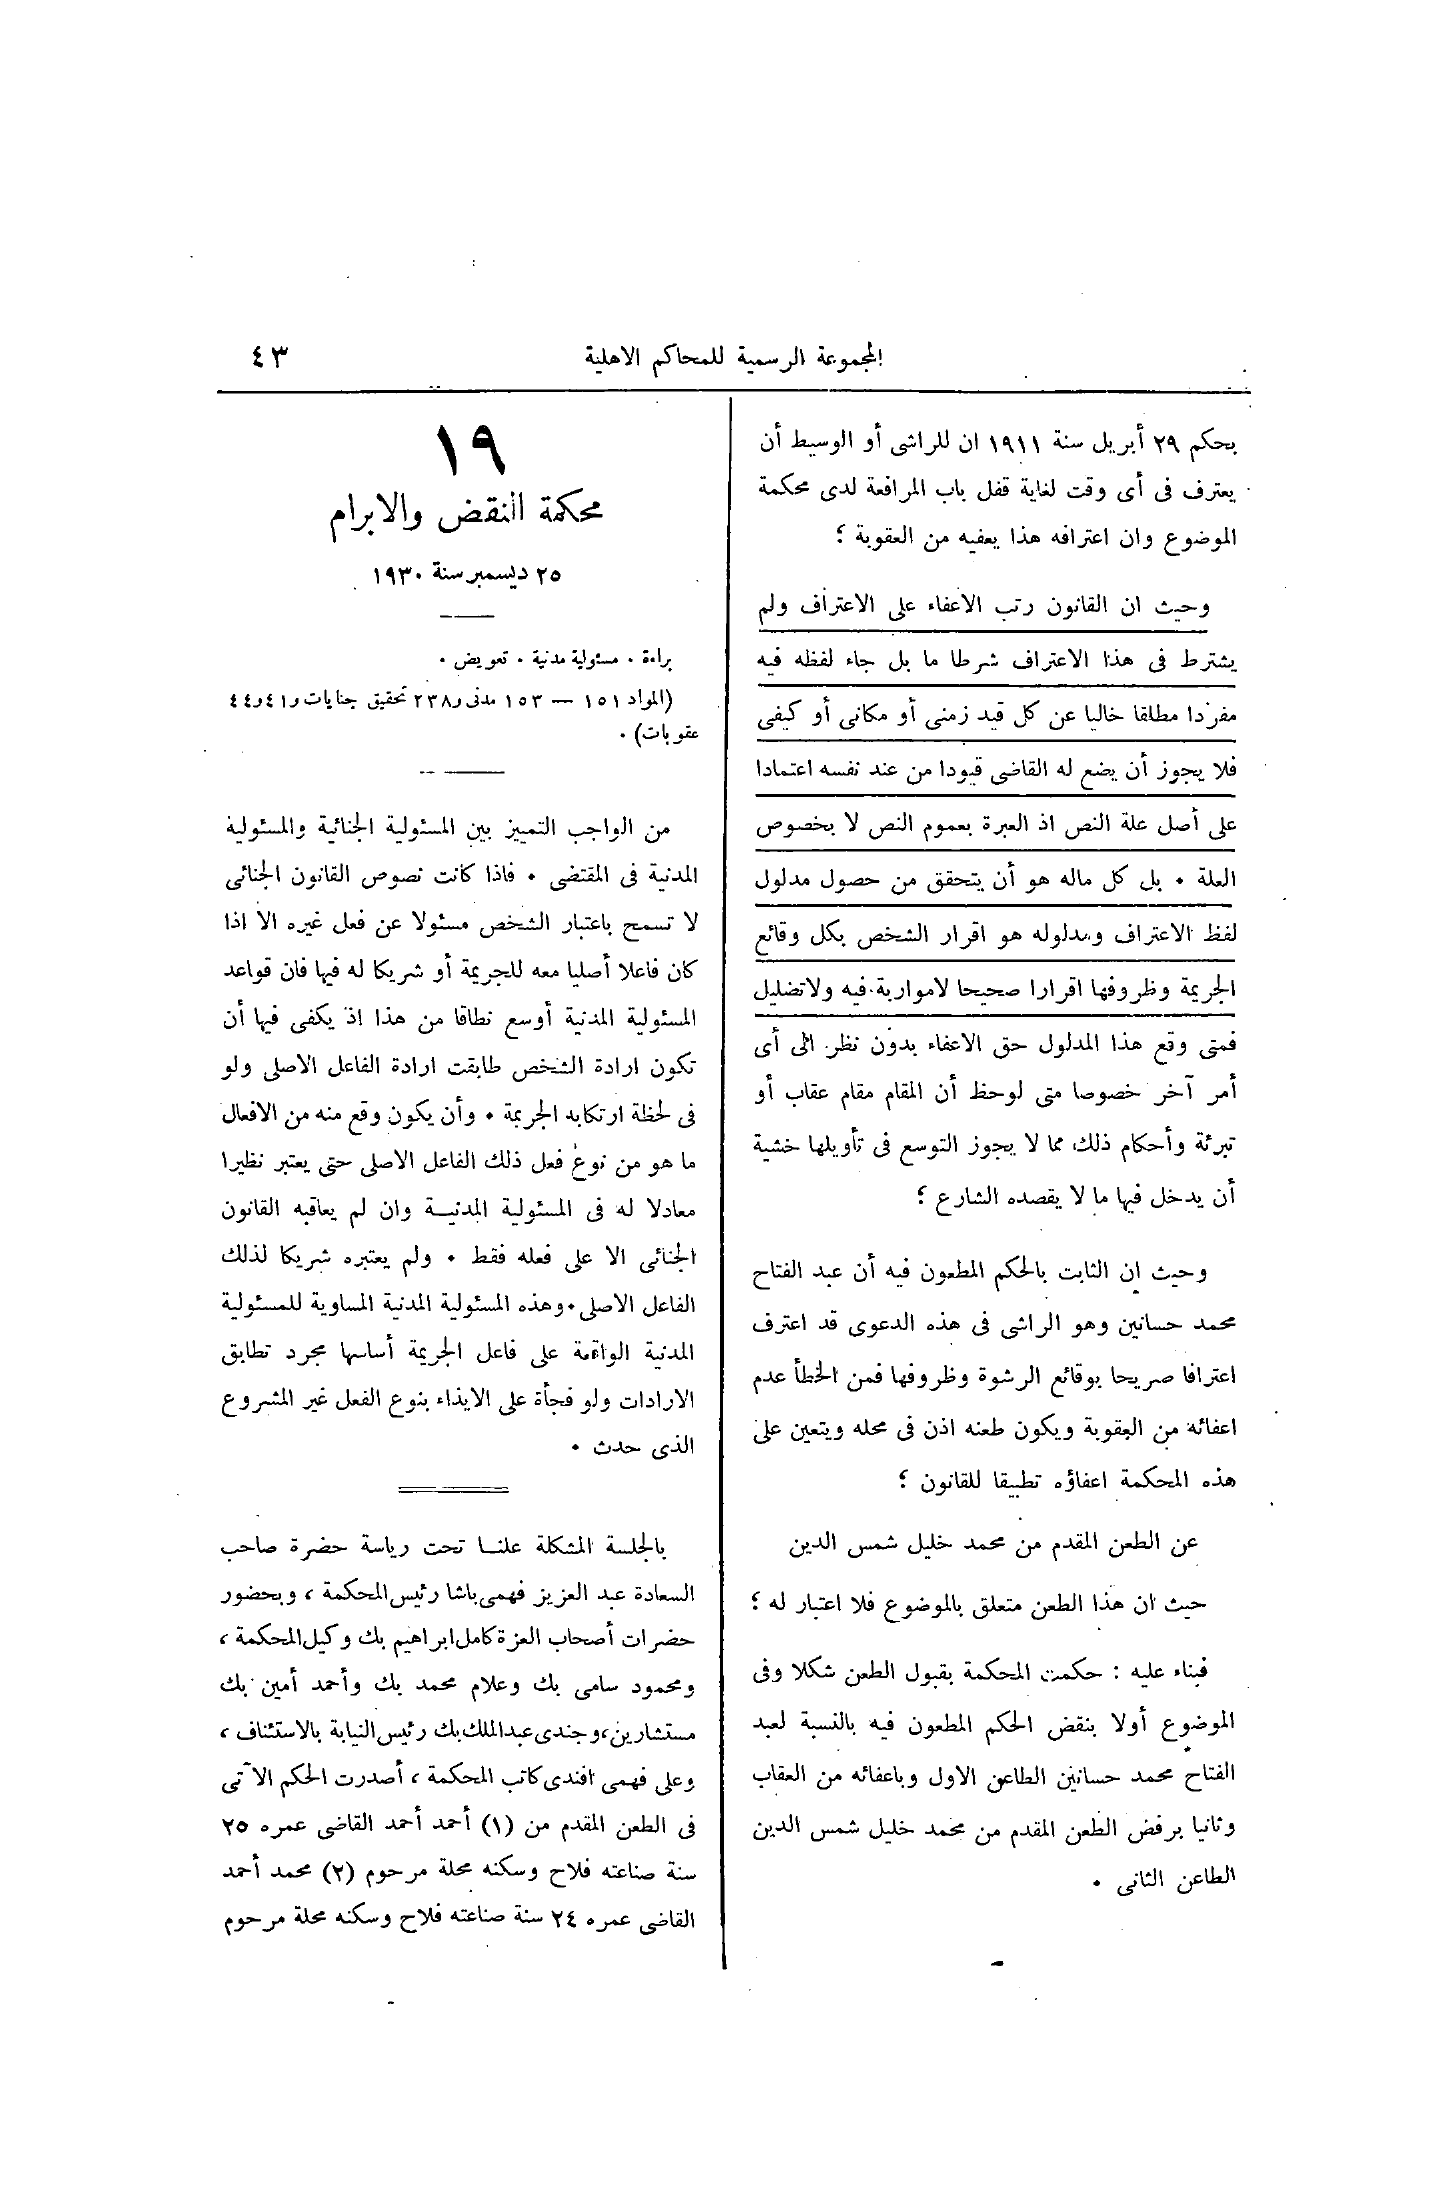 المجموعة الرسمية للمحاكم الاهلية
٤٣
بحكم ٢٩ أبريل سنة ١٩١١ ان للراشى أو الوسيط أن
يعترف فى أى وقت لغاية قفل باب المرافعة لدى محكمة
الموضوع وان اعترافه هذا يعفيه من العقوبة ؛
وحيث ان القانون رتب الاعفاء على الاعتراف ولم
يشترط فى هذا الاعتراف شرطا ما بل جاء لفظه فيه
مفردا مطلقا خاليا عن كل قيد زمنى أو مكانى أو كيفى
فلا يجوز أن يضع له القاضى قيودا من عند نفسه اعتمادا
على أصل علة النص اذ العبرة بعموم النص لا بخصوص
العلة ٠ بل كل ماله هو أن يتحقق من حصول مدلول
لفظ الاعتراف ومدلوله هو اقرار الشخص بكل وقائع
الجريمة وظروفها اقرارا صحيحا لاموارية فيه ولاتضليل
فمتى وقع هذا المدلول حق الاعفاء بدون نظر الى أى
أمر آخر خصوصا متى لوحظ أن المقام مقام عقاب أو
تبرئة وأحكام ذلك مما لا يجوز التوسع فى تأويلها خشية
أن يدخل فيها ما لا يقصده الشارع ؛
وحيث ان الثابت بالحكم المطعون فيه أن عبد الفتاح
محمد حسانين وهو الراشى فى هذه الدعوى قد اعترف
اعترافا صريحا بوقائع الرشوة وظروفها فمن الخطأ عدم
اعفائه من العقوبة ويكون طعنه اذن فى محله ويتعين على
هذه المحكمة اعفاؤه تطبيقا للقانون ؛
عن الطعن المقدم من محمد خليل شمس الدين
حيث ان هذا الطعن متعلق بالموضوع فلا اعتبار له ؛
فبناء عليه : حكمت المحكمة بقبول الطعن شكلا وفى
الموضوع أولا بنقض الحكم المطعون فيه بالنسبة لعبد
الفتاح محمد حسانين الطاعن الاول وباعفائه من العقاب
وثانيا برفض الطعن المقدم من محمد خليل شمس الدين
الطاعن الثانى ٠
١٩
محكمة النقض والابرام
٢٥ ديسمبر سنة ١٩٣٠
براءة ٠ مسئولية مدنية ٠ تعويض ٠
(المواد ١٥١ — ١٥٣ مدنى و٢٣٨ تحقيق جنايات و٤١ و٤٤
عقوبات) ٠
من الواجب التمييز بين المسئولية الجنائية والمسئولية
المدنية فى المقتضى ٠ فاذا كانت نصوص القانون الجنائى
لا تسمح باعتبار الشخص مسئولا عن فعل غيره الا اذا
كان فاعلا أصليا معه للجريمة أو شريكا له فيها فان قواعد
المسئولية المدنية أوسع نطاقا من هذا اذ يكفى فيها أن
تكون ارادة الشخص طابقت ارادة الفاعل الاصلى ولو
فى لحظة ارتكابه الجريمة ٠ وأن يكون وقع منه من الافعال
ما هو من نوع فعل ذلك الفاعل الاصلى حتى يعتبر نظيرا
معادلا له فى المسئولية المدنيـة وان لم يعاقبه القانون
الجنائى الا على فعله فقط ٠ ولم يعتبره شريكا لذلك
الفاعل الاصلى٠وهذه المسئولية المدنية المساوية للمسئولية
المدنية الواقعة على فاعل الجريمة أساسها مجرد تطابق
الارادات ولو فجأة على الايذاء بنوع الفعل غير المشروع
الذى حدث ٠
بالجلسة المشكلة علنـا تحت رياسة حضرة صاحب
السعادة عبد العزيز فهمى باشا رئيس المحكمة ، وبحضور
حضرات أصحاب العزة كامل ابراهيم بك وكيل المحكمة ،
ومحمود سامى بك وعلام محمد بك وأحمد أمين بك
مستشارين، وجندى عبد الملك بك رئيس النيابة بالاستئناف ،
وعلى فهمى افندى كاتب المحكمة ، أصدرت الحكم الآتى
فى الطعن المقدم من (١) أحمد أحمد القاضى عمره ٢٥
سنة صناعته فلاح وسكنه محلة مرحوم (٢) محمد أحمد
القاضى عمره ٢٤ سنة صناعته فلاح وسكنه محلة مرحوم